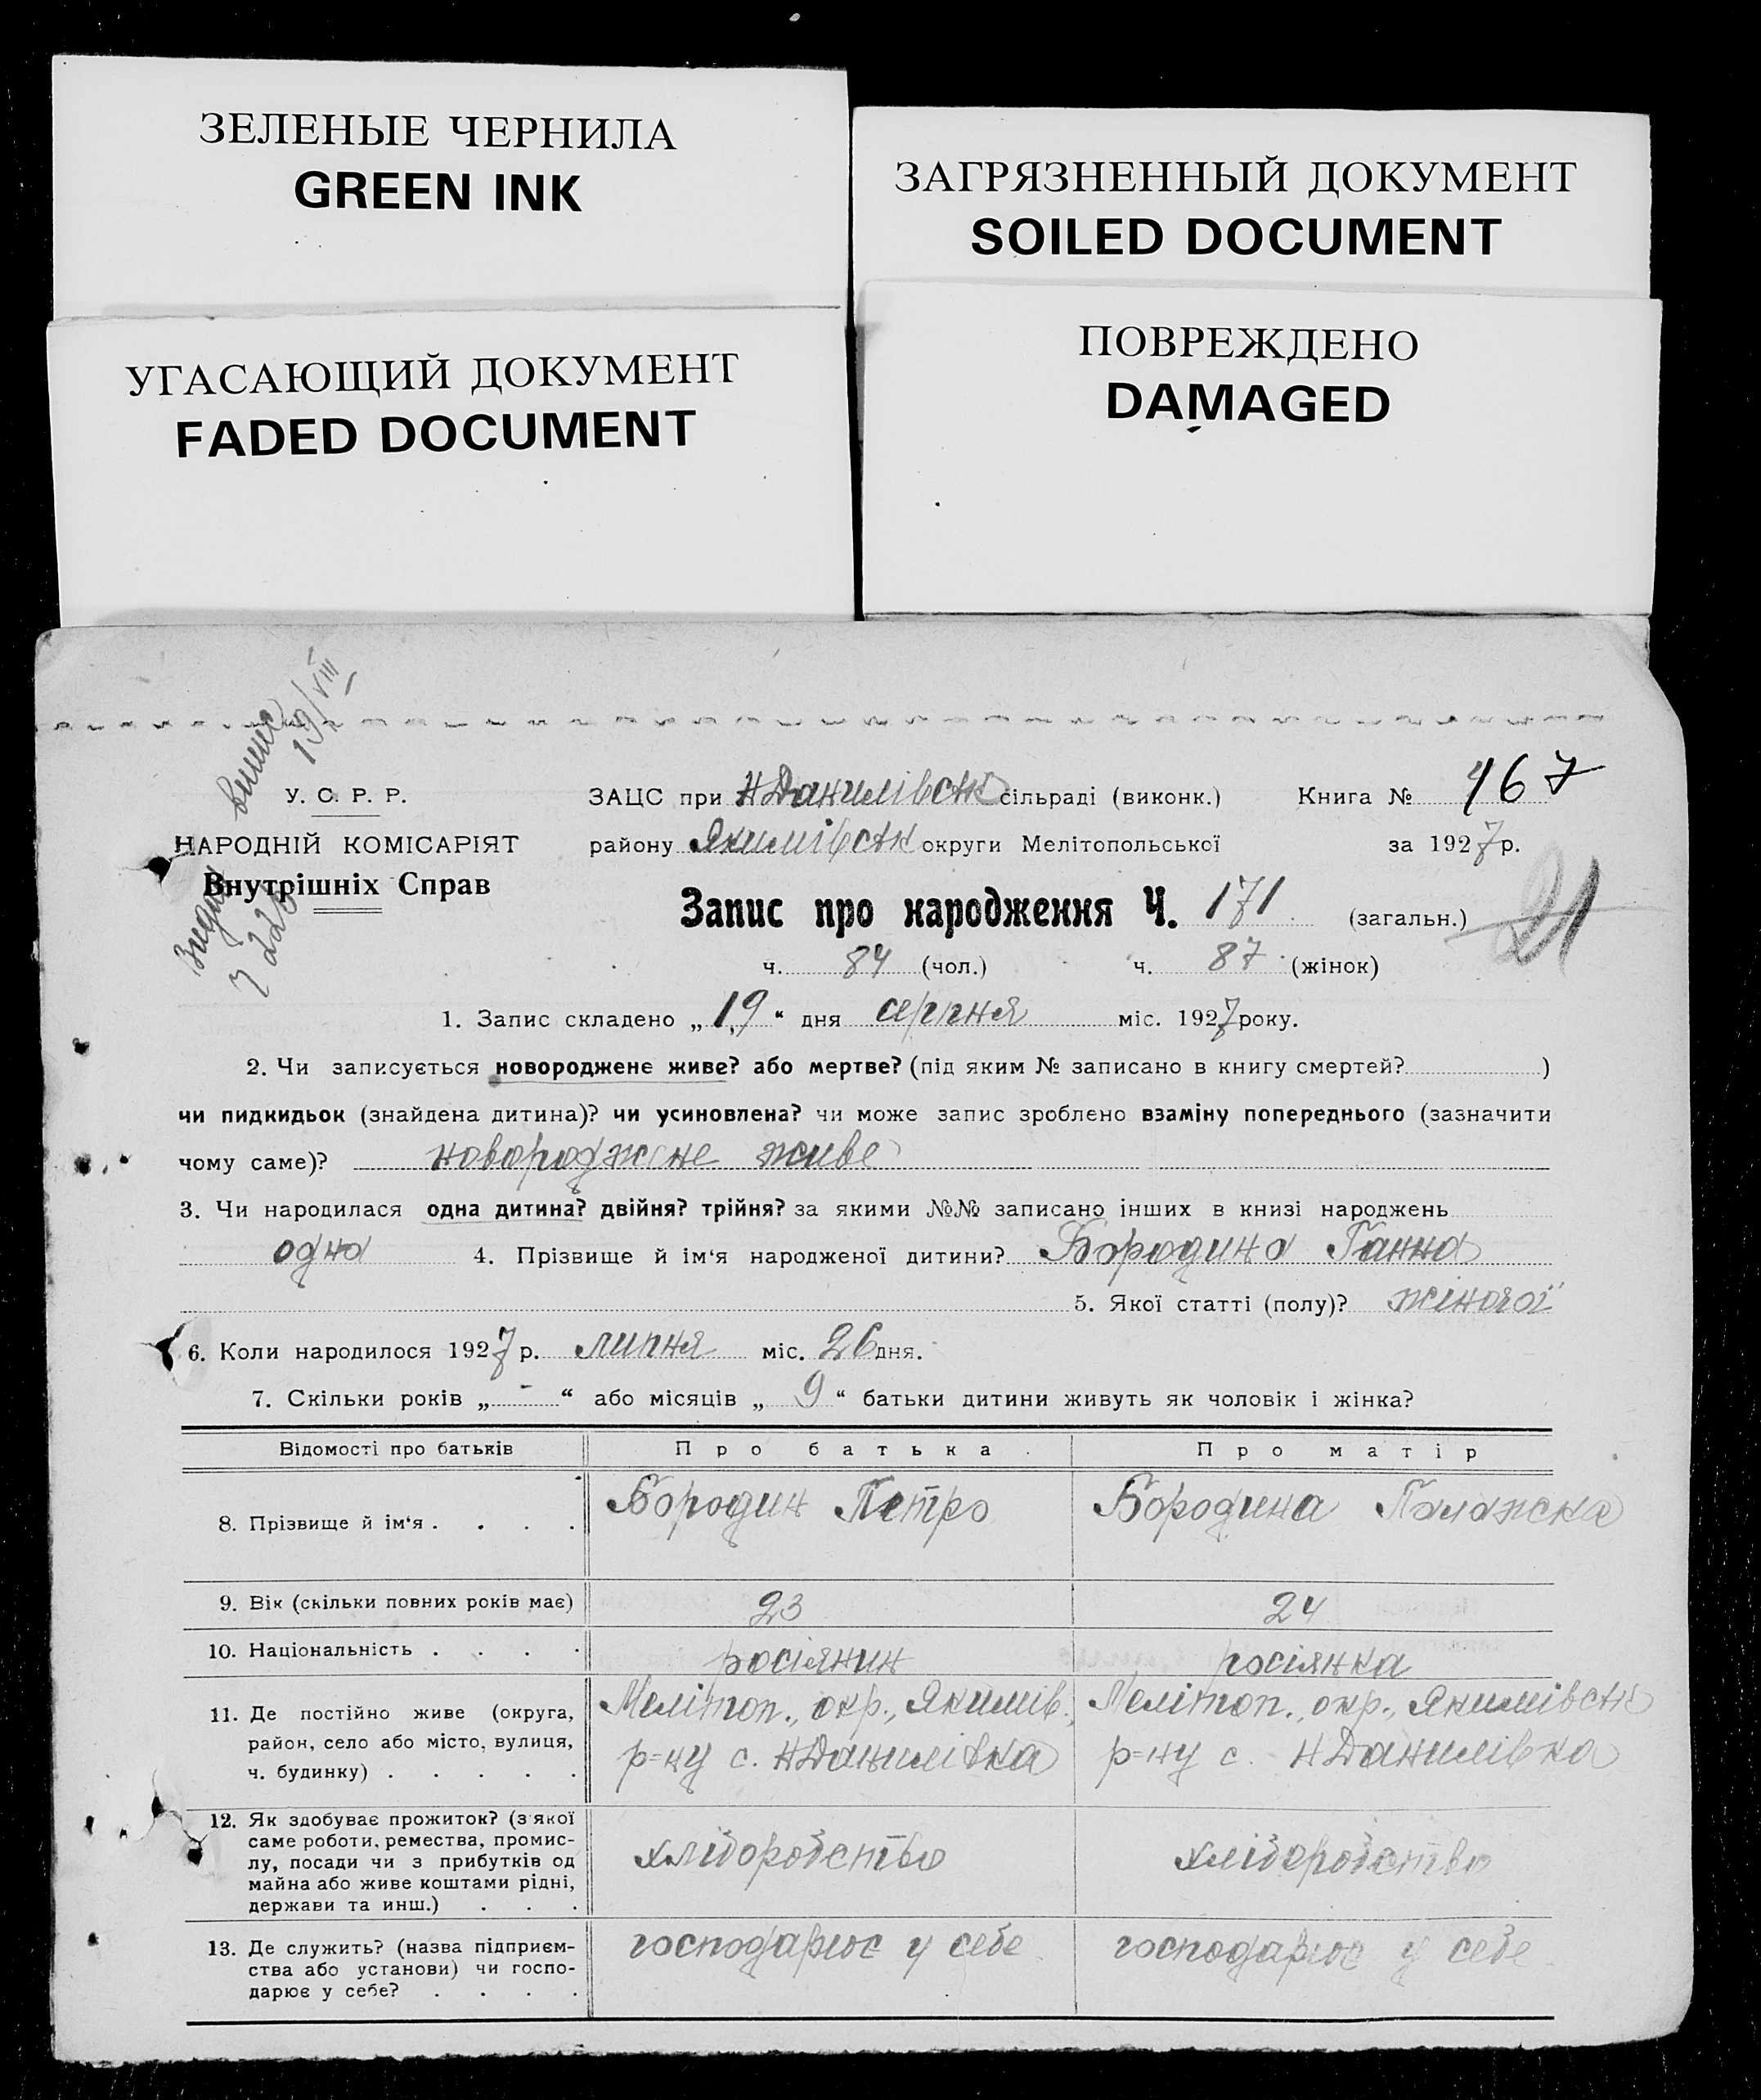 ЗЕЛЕНЫЕ ЧЕРНИЛА
GREEN INK
ЗАГРЯЗНЕННЫЙ ДОКУМЕНТ
SOILED DOCUMENT
УГАСАЮЩИЙ ДОКУМЕНТ
FADED DOCUMENT
ПОВРЕЖДЕНО
DAMAGED
19/VIII
У. С. Р. Р.
НАРОДНІЙ КОМІСАРІЯТ
Внутрішніх Справ
ЗАЦС при НДанилівськ сільраді (виконк.) Книга № 467
району Якимівськ округи Мелітопольської за 1927 р.
Запис про народження Ч. 171 (загальн.) 21
ч. 84 (чол.) ч. 87 (жінок)
1. Запис складено „ 19 “ дня серпня міс. 1927 року.
2. Чи записується новороджене живе? або мертве? (під яким № записано в книгу смертей? )
чи пидкидьок (знайдена дитина)? чи усиновлена? чи може запис зроблено взаміну попереднього (зазначити
чому саме)? новороджене живе
3. Чи народилася одна дитина? двійня? трійня? за якими №№ записано інших в книзі народжень
одна 4. Прізвище й ім‘я народженої дитини? Бородина Ганна
5. Якої статті (полу)? жіночої
6. Коли народилося 1927 р. липня міс. 26 дня.
7. Скільки років „ - “ або місяців „ 9 “ батьки дитини живуть як чоловік і жінка?
Відомості про батьків Про батька Про матір
8. Прізвище й ім‘я . . . . Бородин Петро Бородина Палажска
9. Вік (скільки повних років має) 23 24
10. Національність . . . . росіянин росіянка
11. Де постійно живе (округа,
район, село або місто, вулиця,
ч. будинку) . . . . .
Меліт оп., окр., Якимів.
р=ну с. НДанилівка
Мелітоп., окр., Якимівськ
р=ну с. НДанилівка
12. Як здобуває прожиток? (з якої
саме роботи, ремества, промис-
лу, посади чи з прибутків од
майна або живе коштами рідні,
держави та инш.) . . .
хліборобство
хліборобство
13. Де служить? (назва підприєм-
ства або установи) чи госпо-
дарює у себе? . . . .
господарює у себе
господарює у себе